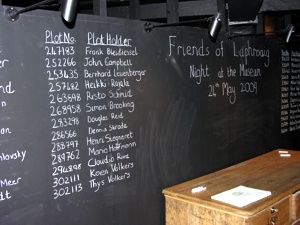 Plot No. Plot Holder
247183 Frank Bleidiessel
252266 John Campbell
253435 Bernhard Leuenberger
257482 Heikki Rajala
263698 Risto Schmidt
268958 Simon Brooking
283298 Douglas Reid
286566 Dennis
288797 Henri Siegneret
289762 Mario Hoffmann
294898 Claudio Riva
302111 Kim Volkers
302113 Thys Volkers
Friends of Laphroaig
Night at the Museum
24th May 2009
Meer